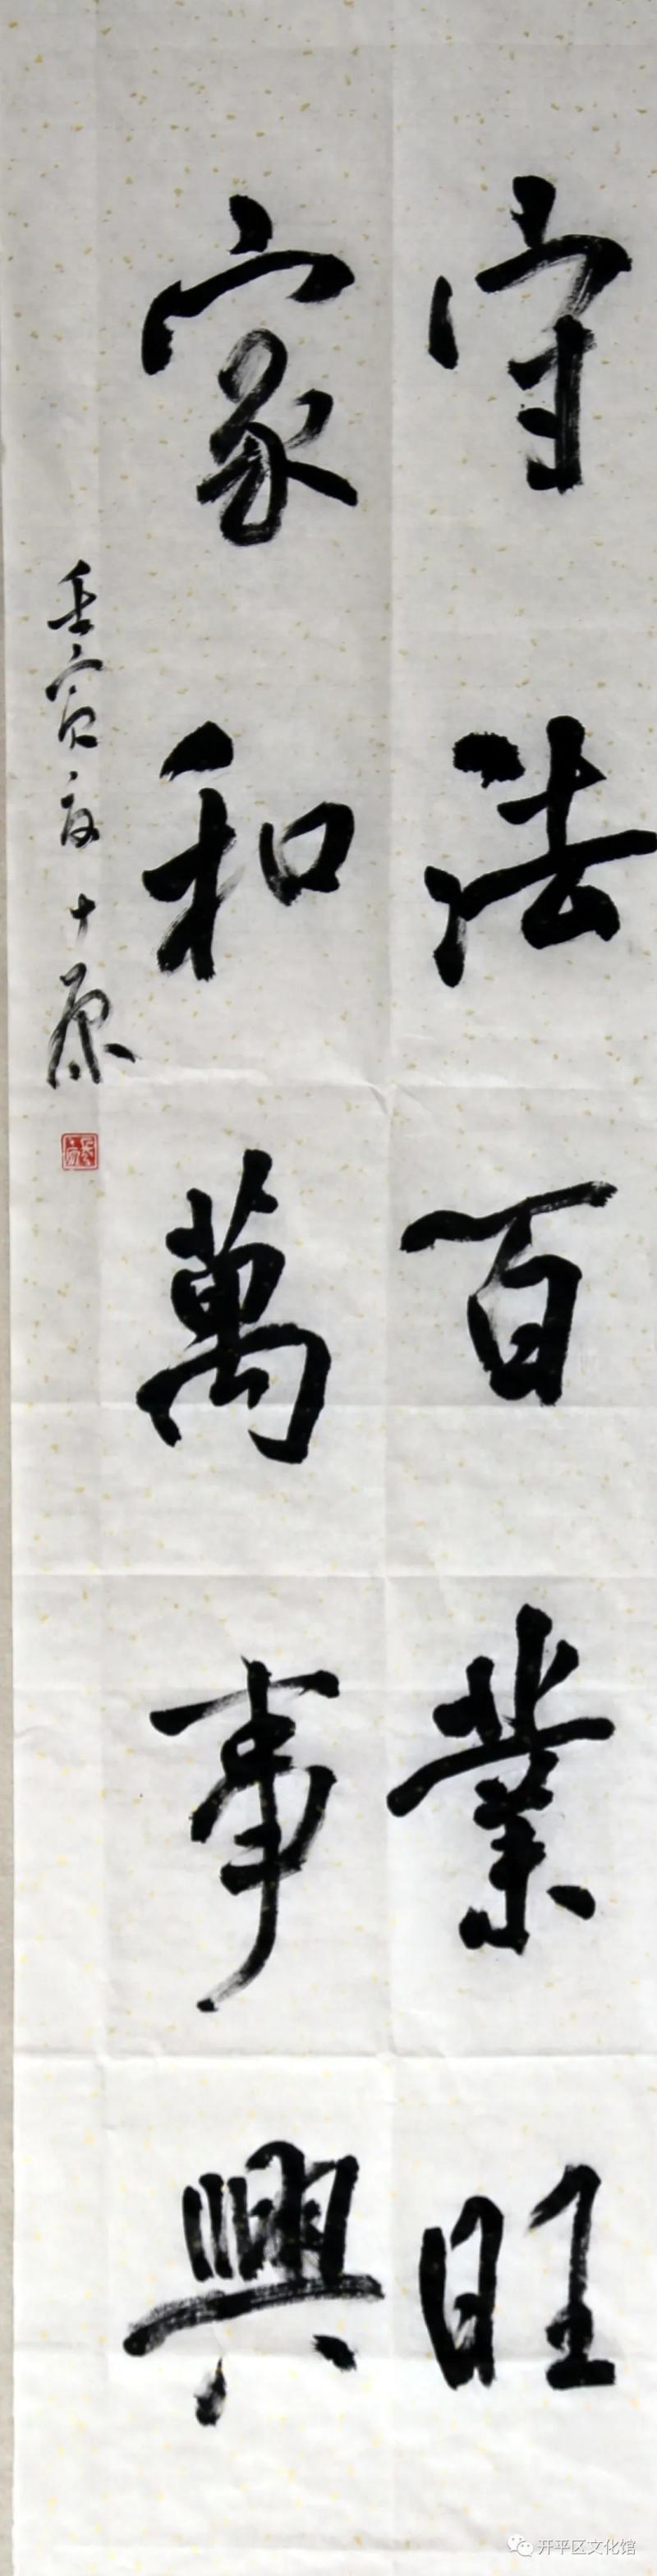 守法百業旺
家和萬事興
壬寅夏十原
开平区文化馆